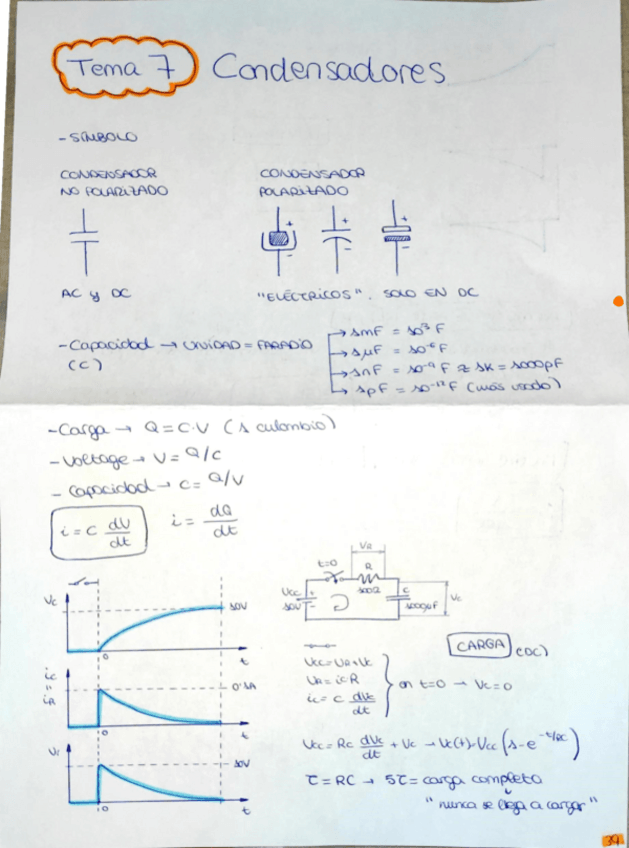 Tema 7 Condensadores
- SÍMBOLO
CONDENSADOR
NO POLARIZADO
CONDENSADOR
POLARIZADO
+ + +
- - -
AC y DC
"ELÉCTRICOS". SOLO EN DC
- Capacidad → UNIDAD = FARADIO
(C)
→ 1mF = 10³ F
→ 1μF = 10⁻⁶ F
→ 1nF = 10⁻⁹ F ≈ 1K = 1000pF
→ 1pF = 10⁻¹² F (más usado)
- Carga → Q = C·V (1 culombio)
- Voltage → V = Q/C
- Capacidad → C = Q/V
i = C dV/dt
i = dQ/dt
Vc
10V
0
t
ic = iR
0'1A
0
t
10V
0
t
t=0
VR
R
100Ω
Vcc
10V
+
-
C
1000μF
Vc
CARGA (DC)
Vcc = VR + Vc
VR = ic R
ic = C dVc/dt
en t=0 → Vc = 0
Vcc = RC dVc/dt + Vc → Vc(t) = Vcc (1 - e^-t/RC)
τ = RC → 5τ = carga completa
"nunca se llega a cargar"
39